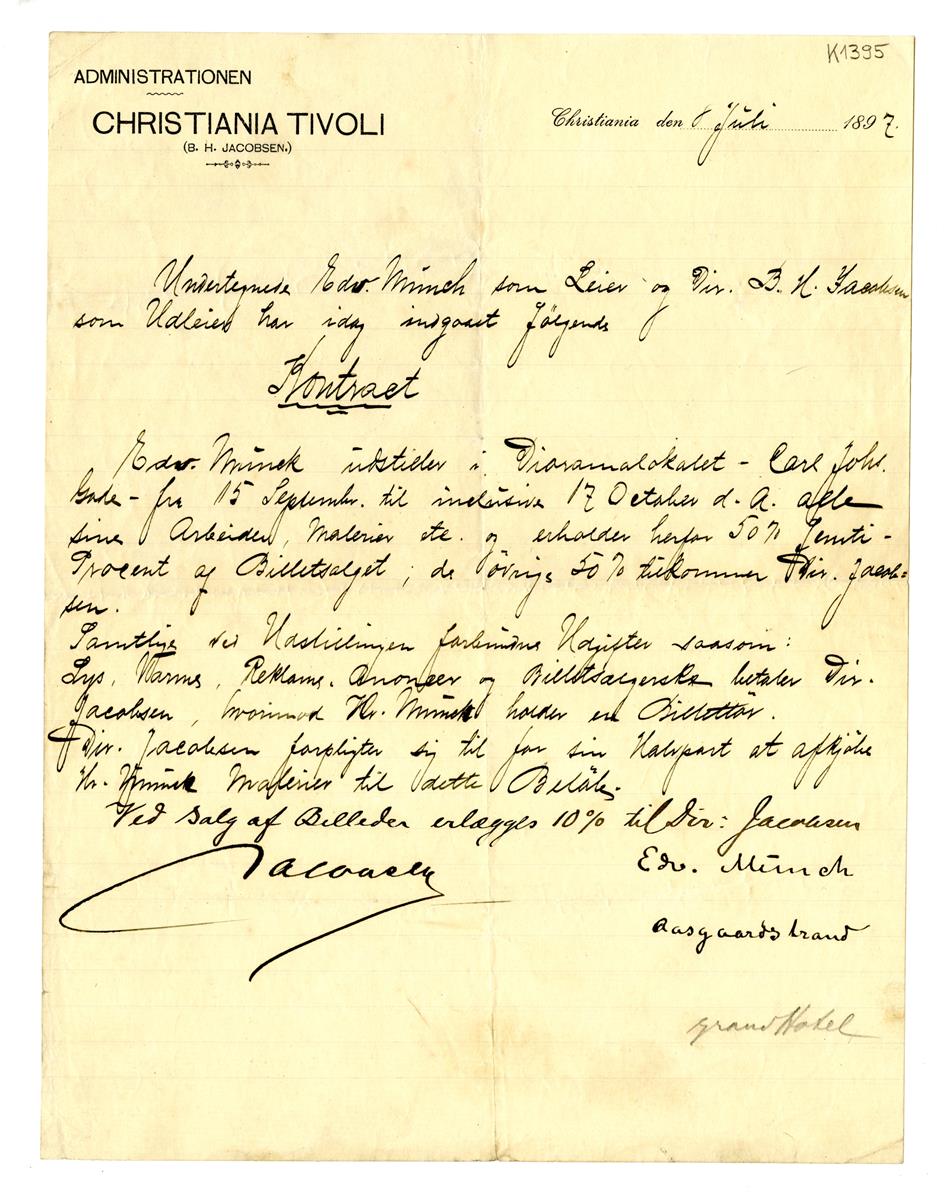 K1395
ADMINISTRATIONEN
CHRISTIANIA TIVOLI
(B. H. JACOBSEN.)
Christiania den 8 Juli 1897.
Undertegnede Edv. Munch som Leier og Dir. B. H. Jacobsen
som Udleier har idag indgaaet følgende
Kontract
Edv. Munch udstiller i Dioramalokalet – Carl Johs.
Gade – fra 15 Septembr. til inclusive 17 October d. A. alle
sine Arbeider, Malerier etc. og erholder herfor 50% femti-
Procent af Billetsalget; de øvrige 50% tilkommer Dir. Jacob=
sen.
Samtlige ved Udstillingen forbundne Udgifter saasom:
Lys, Varme, Reklame, Anoncer og Billetsælgerske betaler Dir.
Jacobsen, hvorimod Hr. Munch holder en Billettør.
Dir. Jacobsen forpligter sig til for sin Halvpart at afkjøbe
Hr. Munch Malerier til dette Beløb.
Ved Salg af Billeder erlægges 10% til Dir: Jacobsen
Jacobsen
Edv. Munch
Aasgaardstrand
Grand Hotel